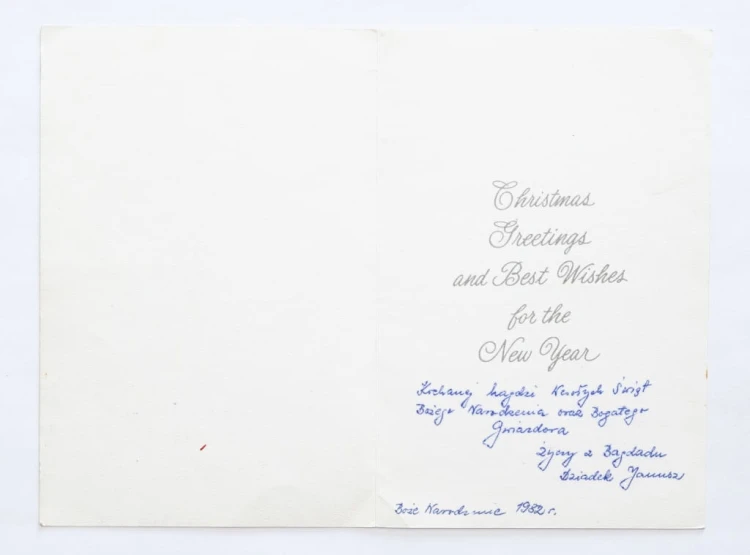 Christmas
Greetings
and Best Wishes
for the
New Year
Kochanej Magdzi Wesołych Świąt
Bożego Narodzenia oraz Bogatego
Gwiazdora
Życzy z Bagdadu
Dziadek Janusz
Boże Narodzenie 1982 r.